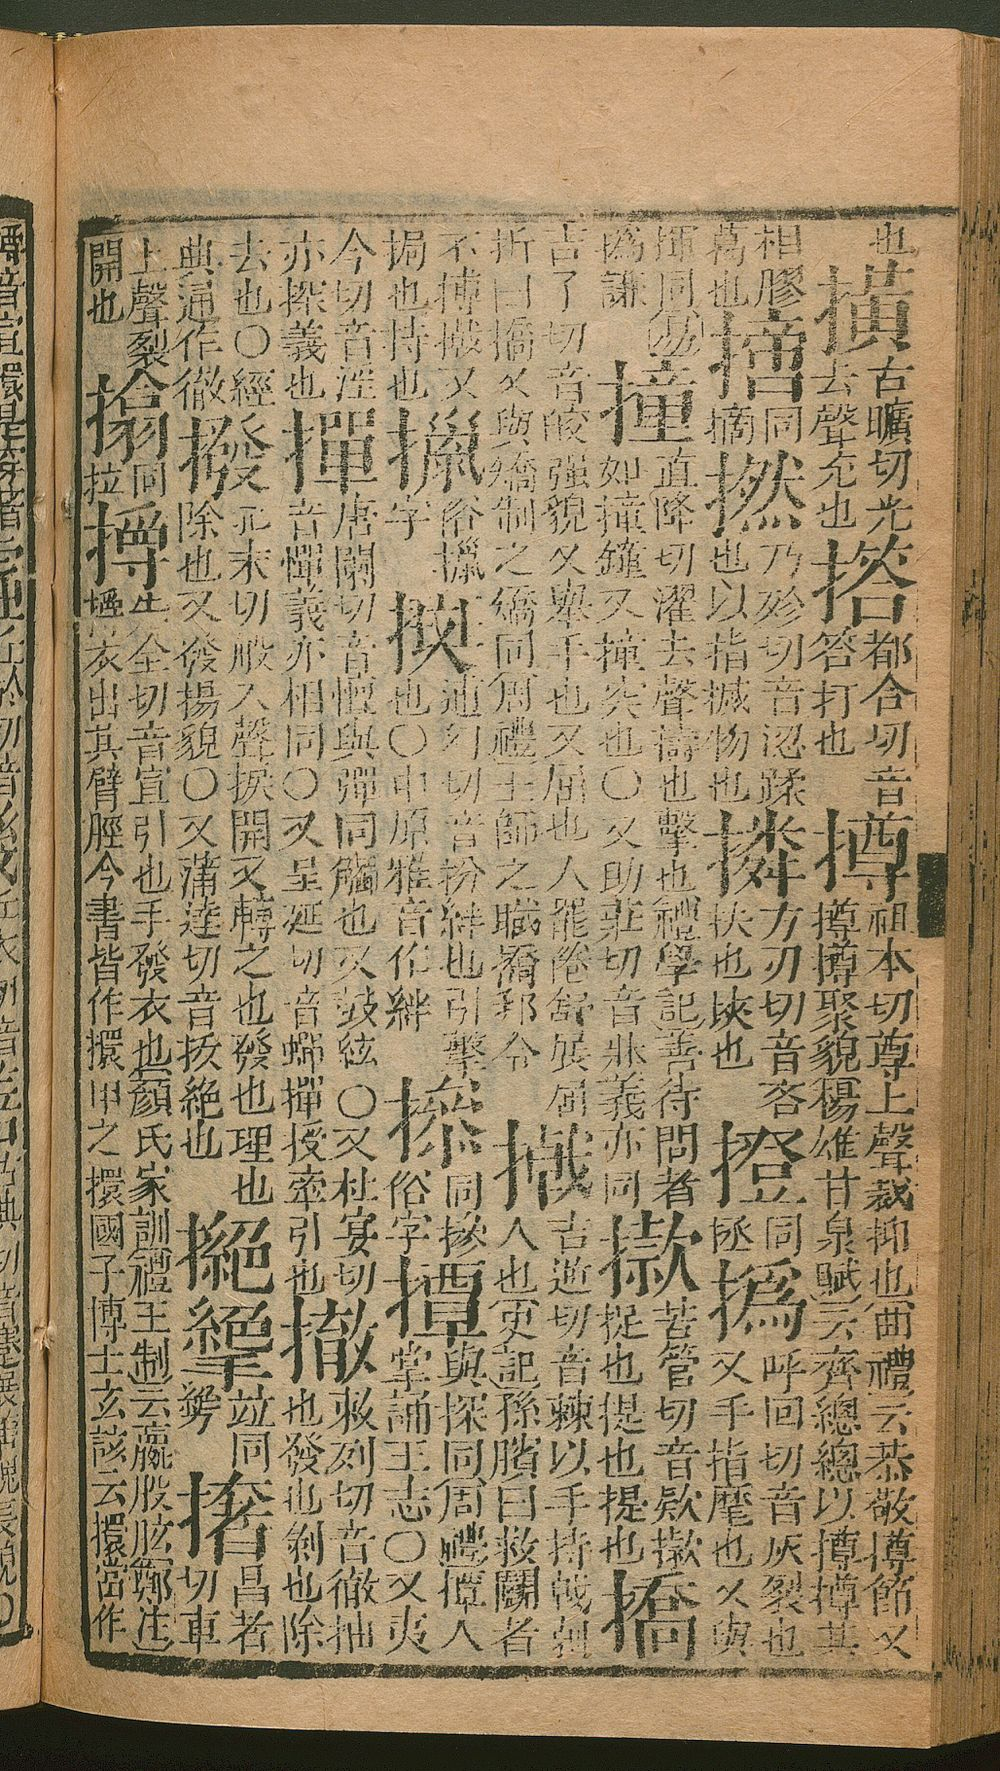 也
横
古曠切光
去聲充也
搭
都合切音
答打也
撙
祖本切尊上聲裁抑也曲禮云恭敬撙節又
撙撙聚貌楊雄甘泉賦云齊總總以撙撙其
相膠
萬也
同
摘
撚
乃殄切音涊蹂
也以指搣物也
撛
方刃切音吝
扶也挾也
撜
同
拯
撝
呼回切音灰裂也
又手指麾也又與
揮同易
撝謙
撞
直降切濯去聲擣也擊也禮學記善待問者
如撞鐘又撞突也○又助莊切音牀義亦同
苦管切音欵
捉也提也提也
撟
吉了切音皎强貌又舉手也又屈也人罷倦舒展屈
折曰撟又與矯制之矯同周禮士師之職撟邦令
撠
吉逆切音棘以手持戟刺
人也史記孫臏曰救鬬者
不搏撠又
挶也持也
擸
俗擸
字
切音扮絆也引擊
也○中原雅音作絆
同
俗字
撢
與探同周禮撢人
掌誦王志○又夷
今切音淫
亦探義也
撣
唐闌切音憻與彈同觸也又鼓絃○又杜宴切
音憚義亦相同○又呈延切音蟬撣援牽引也
撤
敕列切音徹抽
也發也剝也除
去也○經
典通作徹
撥
末切般入聲捩開又轉之也發也理也
除也又發揚貌○又蒲達切音拔絕也
撧
竝同
撦
昌者
切車
上聲裂
開也
搚
同
拉
全切音宣引也手發衣也顏氏家訓禮王制云臝股肱鄭注
衣出其臂脛今書皆作擐甲之擐國子博士玄該云擐當作